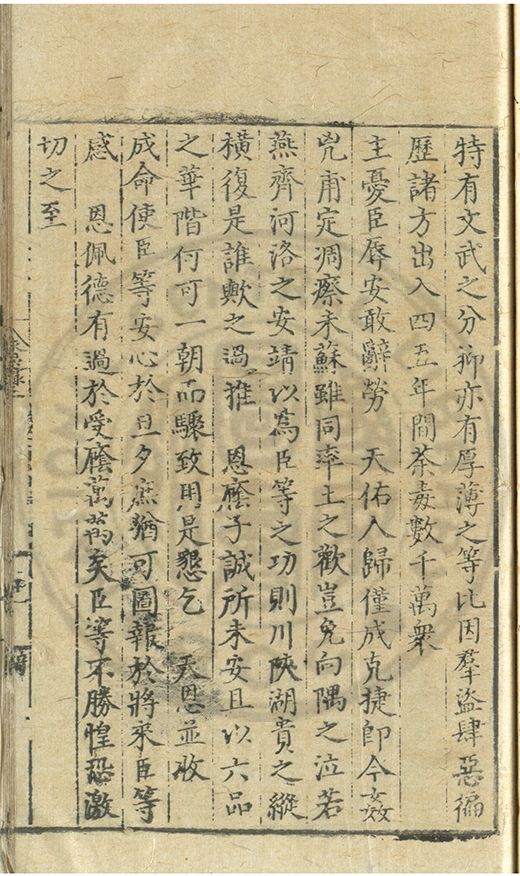 特有文武之分抑亦有厚薄之等比因羣盜肆惡徧
歷諸方出入四五年間荼毒數千萬衆
主憂臣辱安敢辭勞　天佑人歸僅成克捷即今姦
兇甫定凋瘵未蘇雖同率土之歡豈免向隅之泣若
燕齊河洛之安靖以為臣等之功則川陝湖貴之縱
橫復是誰歟之過推　恩廕子誠所未安且以六品
之華階何可一朝而驟致用是懇乞　天恩並收
成命使臣等安心於旦夕庶猶可圖報於將來臣等
感　恩佩德有過於受廕萬萬矣臣等不勝惶恐激
切之至